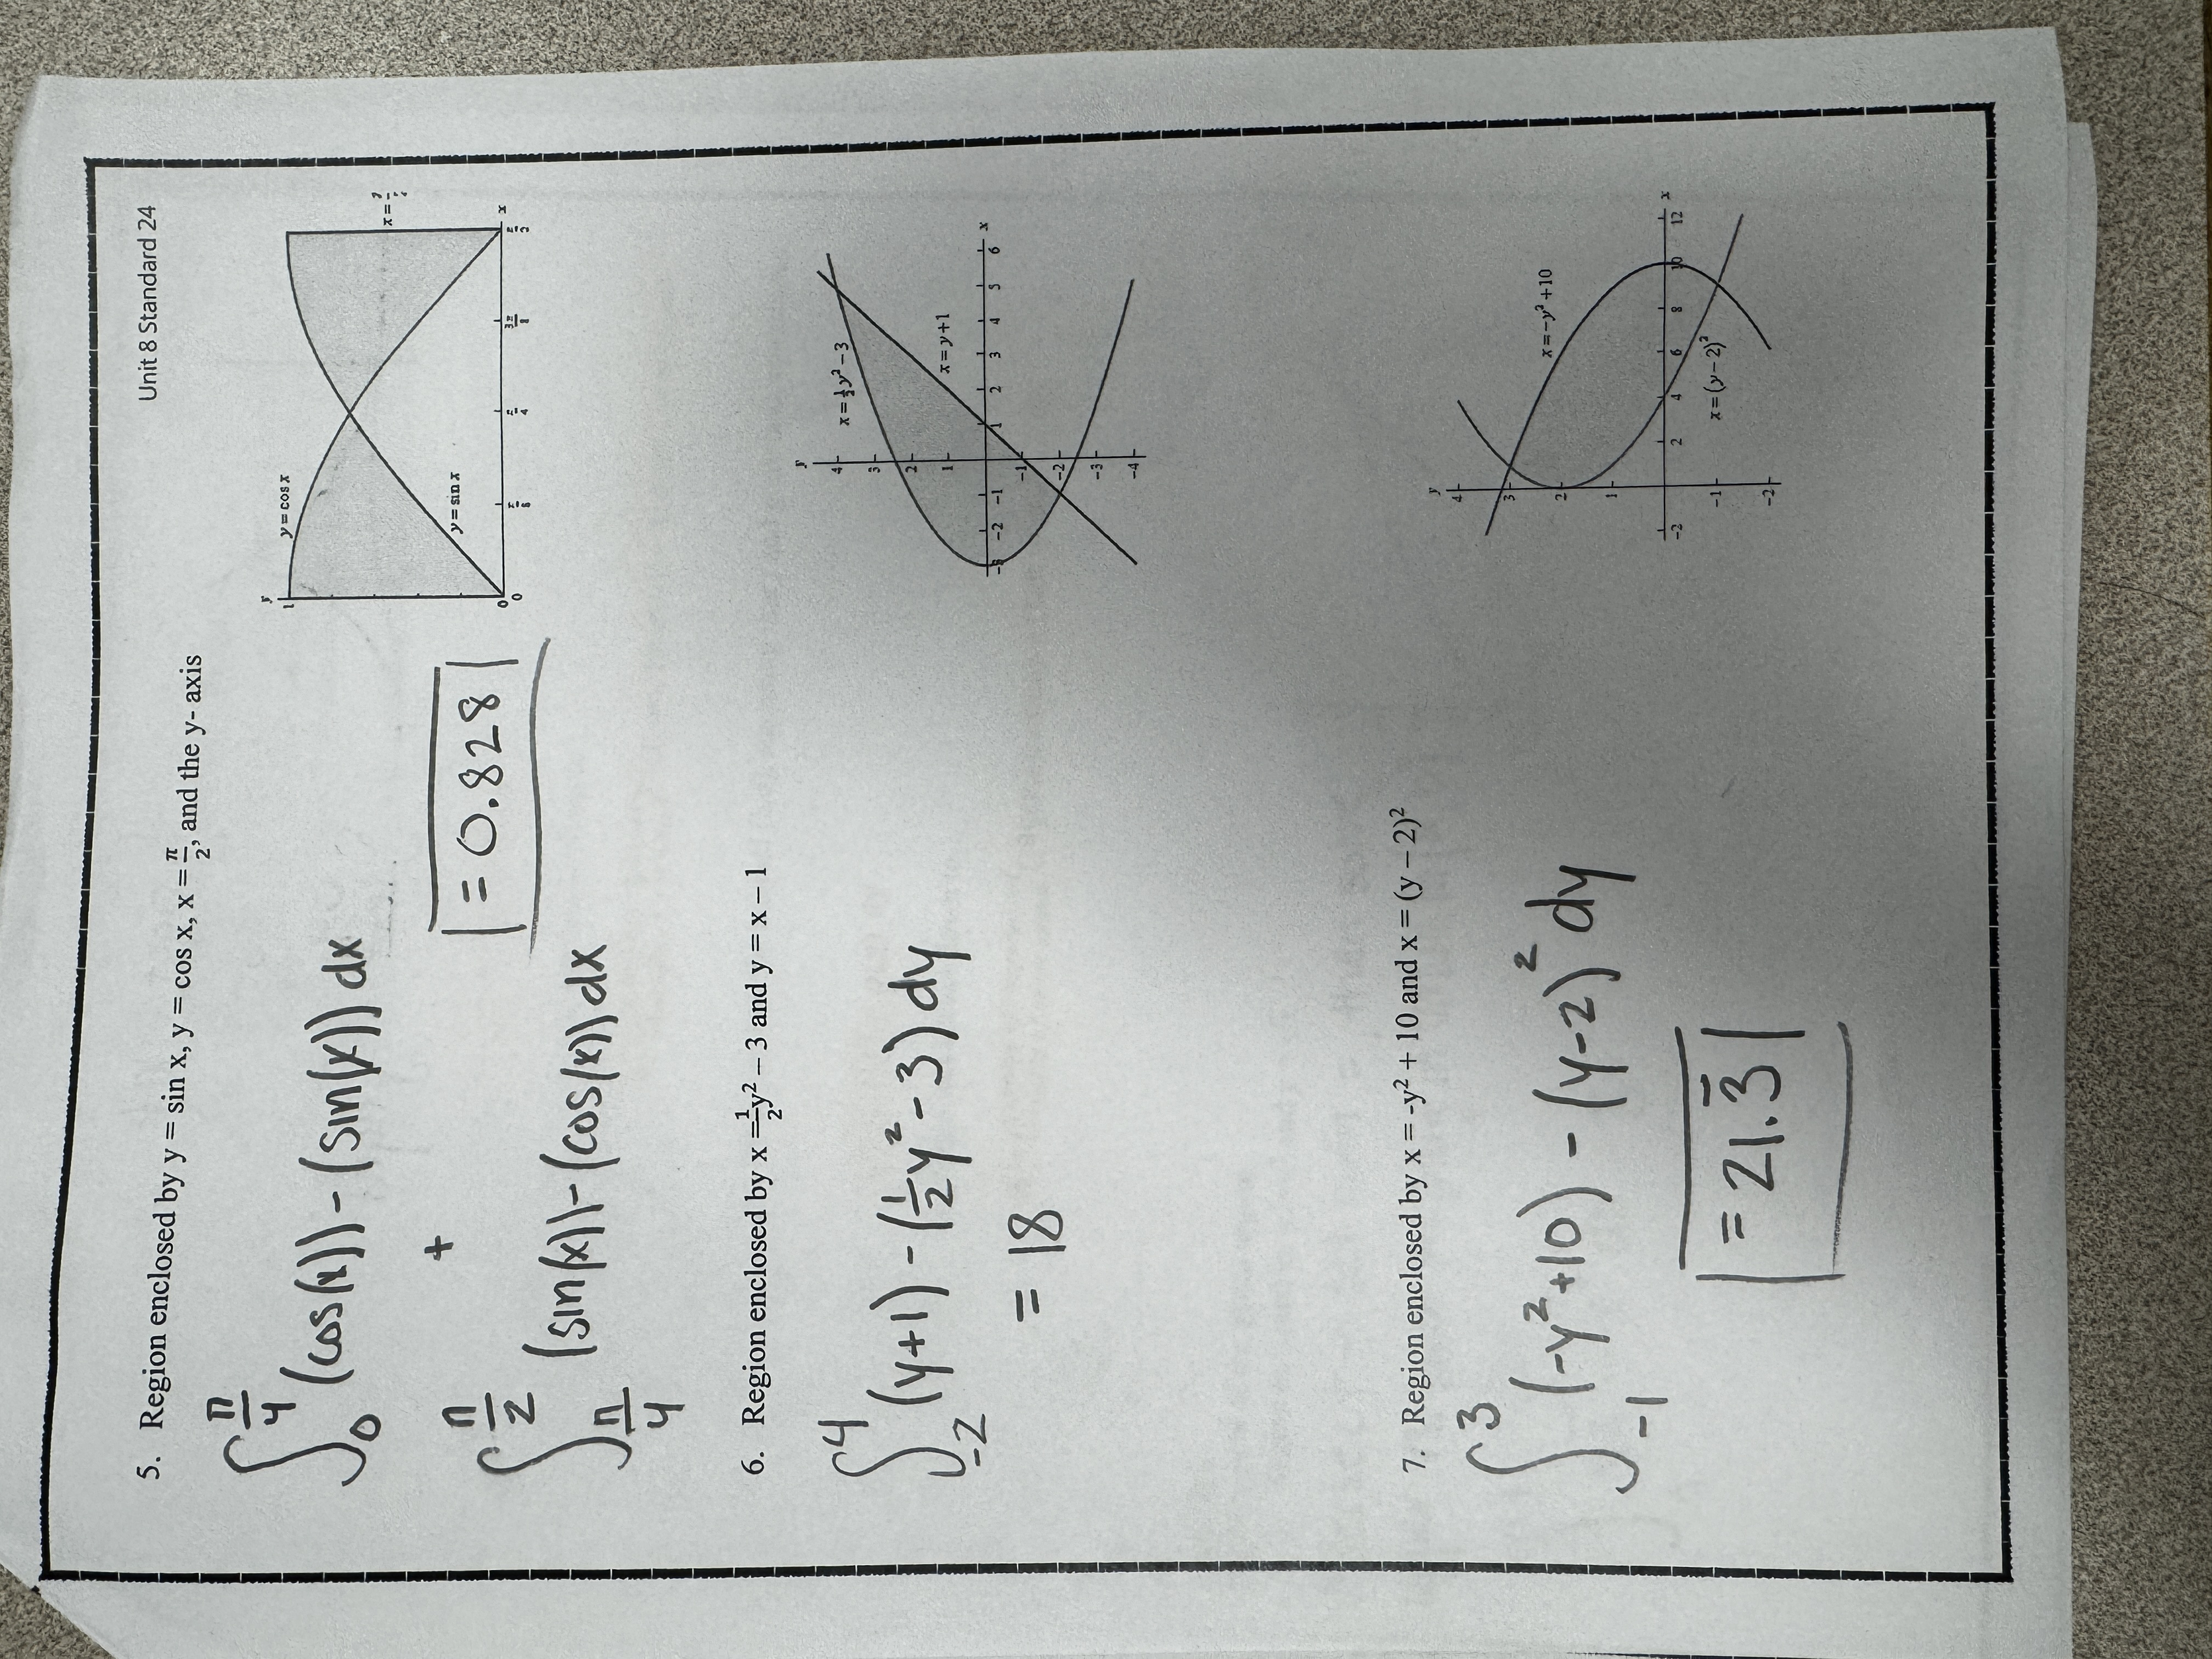 Unit 8 Standard 24
5. Region enclosed by y = sin x, y = cos x, x = π/2, and the y- axis
∫₀^(π/4) (cos(x)) - (sin(x)) dx
+
= 0.828
∫_(π/4)^(π/2) (sin(x)) - (cos(x)) dx
y
1
y = cos x
x =
y = sin x
0
x
0 π/8 π/4 3π/8 π/2
6. Region enclosed by x = ½y² – 3 and y = x – 1
∫₋₂⁴ (y+1) - (½y² - 3) dy
= 18
y
4
x = ½y² – 3
3
2
1
x = y+1
-3 -2 -1 1 2 3 4 5 6 x
-1
-2
-3
-4
7. Region enclosed by x = -y² + 10 and x = (y – 2)²
∫₋₁³ (-y²+10) - (y-2)² dy
= 21.3̅
y
4
3
x = –y² +10
2
1
-2 2 4 6 8 10 12 x
-1
x = (y – 2)²
-2